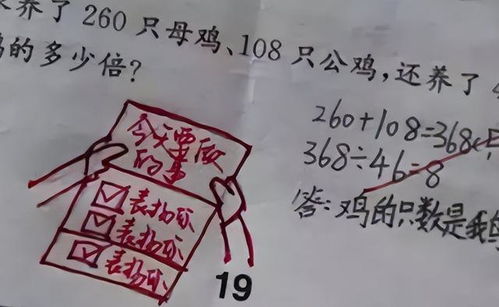 养了 260 只母鸡、108 只公鸡,还养了 4
的多少倍?
260+108=368(只
368÷46=8
答:鸡的只数是我
今天要做
的事
表扬你
表扬你
表扬你
19